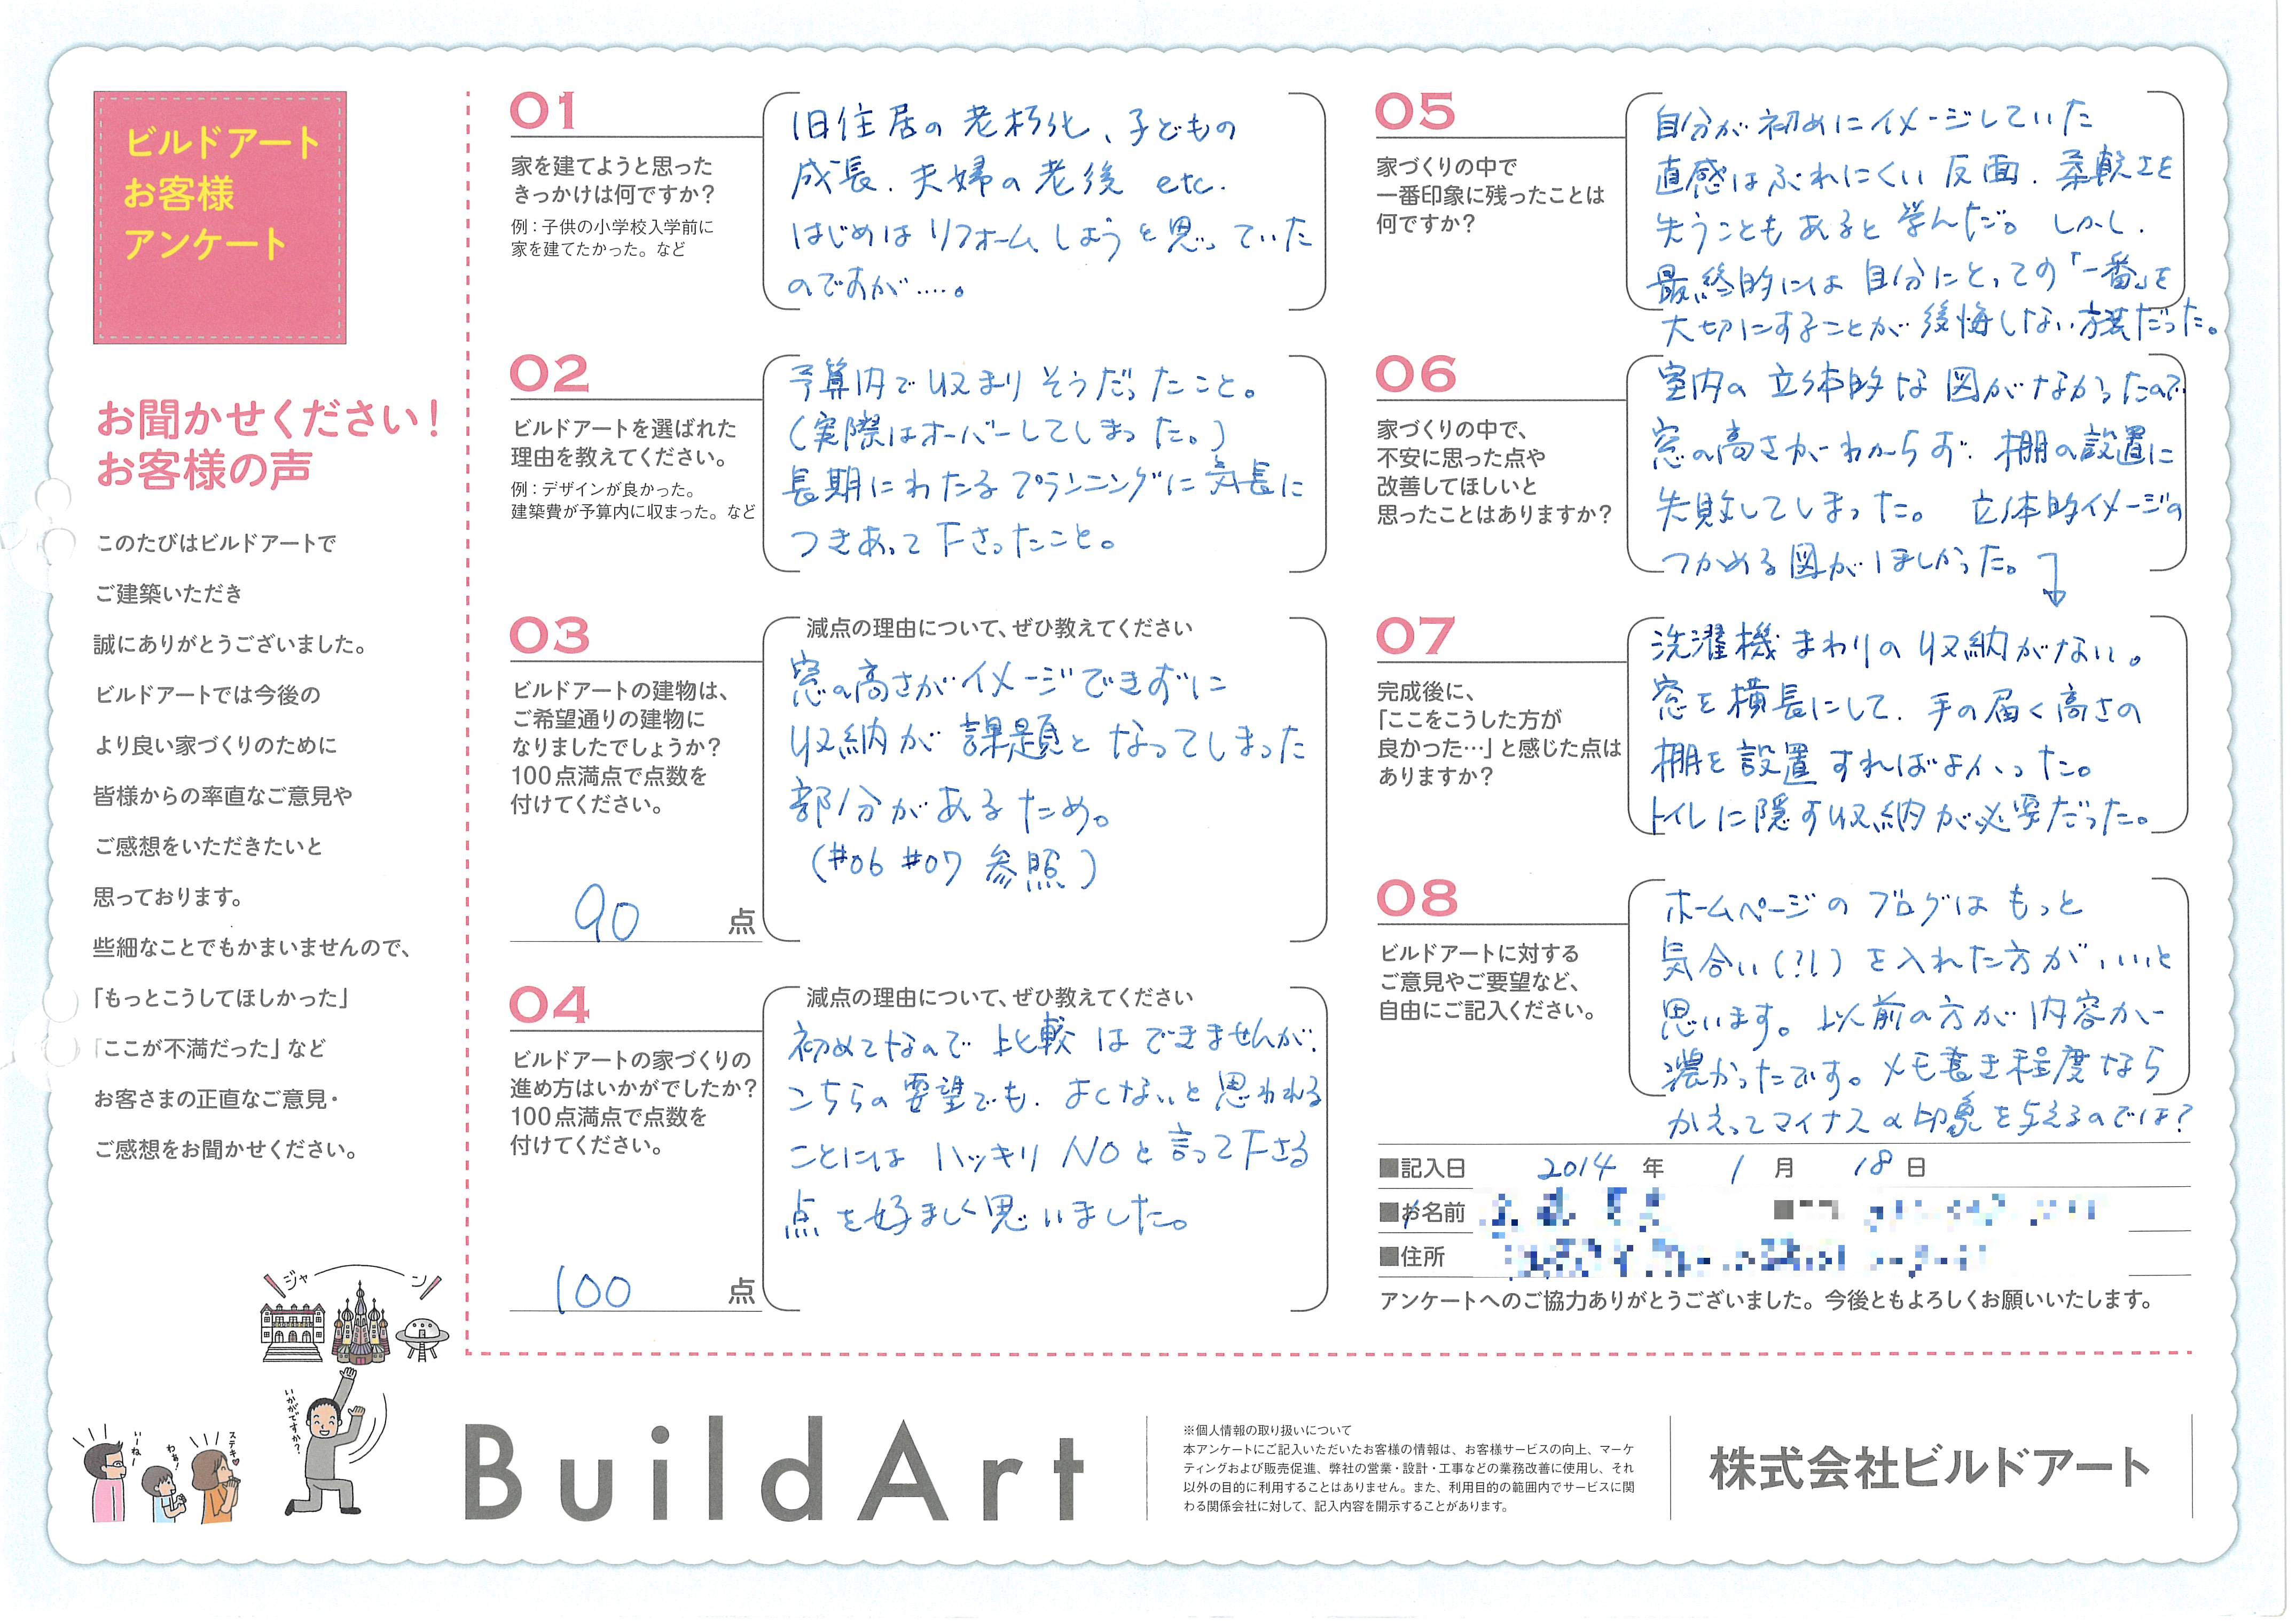 ビルドアート
お客様
アンケート
お聞かせください！
お客様の声
このたびはビルドアートで
ご建築いただき
誠にありがとうございました。
ビルドアートでは今後の
より良い家づくりのために
皆様からの率直なご意見や
ご感想をいただきたいと
思っております。
些細なことでもかまいませんので、
「もっとこうしてほしかった」
「ここが不満だった」など
お客さまの正直なご意見・
ご感想をお聞かせください。
ジャーン
いかがですか？
いーね！
わぁ！
ステキ♥
01
家を建てようと思った
きっかけは何ですか？
例：子供の小学校入学前に
家を建てたかった。など
旧住居の老朽化、子どもの
成長、夫婦の老後 etc.
はじめはリフォームしようと思っていた
のですが‥‥。
02
ビルドアートを選ばれた
理由を教えてください。
例：デザインが良かった。
建築費が予算内に収まった。など
予算内で収まりそうだったこと。
(実際はオーバーしてしまった。)
長期にわたるプランニングに気長に
つきあって下さったこと。
03
ビルドアートの建物は、
ご希望通りの建物に
なりましたでしょうか？
100点満点で点数を
付けてください。
90 点
減点の理由について、ぜひ教えてください
窓の高さがイメージできずに
収納が課題となってしまった
部分があるため。
(#06 #07 参照)
04
ビルドアートの家づくりの
進め方はいかがでしたか？
100点満点で点数を
付けてください。
100 点
減点の理由について、ぜひ教えてください
初めてなので比較はできませんが、
こちらの要望でも、よくないと思われる
ことにはハッキリNOと言って下さる
点を好ましく思いました。
05
家づくりの中で
一番印象に残ったことは
何ですか？
自分が初めにイメージしていた
直感はぶれにくい反面、柔軟さを
失うこともあると学んだ。しかし、
最終的には自分にとっての「一番」を
大切にすることが後悔しない方法だった。
06
家づくりの中で、
不安に思った点や
改善してほしいと
思ったことはありますか？
室内の立体的な図がなかったので
窓の高さがわからず、棚の設置に
失敗してしまった。立体的イメージの
つかめる図がほしかった。
07
完成後に、
「ここをこうした方が
良かった…」と感じた点は
ありますか？
洗濯機まわりの収納がない。
窓を横長にして、手の届く高さの
棚を設置すればよかった。
トイレに隠す収納が必要だった。
08
ビルドアートに対する
ご意見やご要望など、
自由にご記入ください。
ホームページのブログはもっと
気合い(?!)を入れた方がいいと
思います。以前の方が内容が
濃かったです。メモ書き程度なら
かえってマイナスの印象を与えるのでは？
■記入日 2014 年 1 月 18 日
■お名前
■住所
アンケートへのご協力ありがとうございました。今後ともよろしくお願いいたします。
BuildArt
※個人情報の取り扱いについて
本アンケートにご記入いただいたお客様の情報は、お客様サービスの向上、マーケ
ティングおよび販売促進、弊社の営業・設計・工事などの業務改善に使用し、それ
以外の目的に利用することはありません。また、利用目的の範囲内でサービスに関
わる関係会社に対して、記入内容を開示することがあります。
株式会社ビルドアート